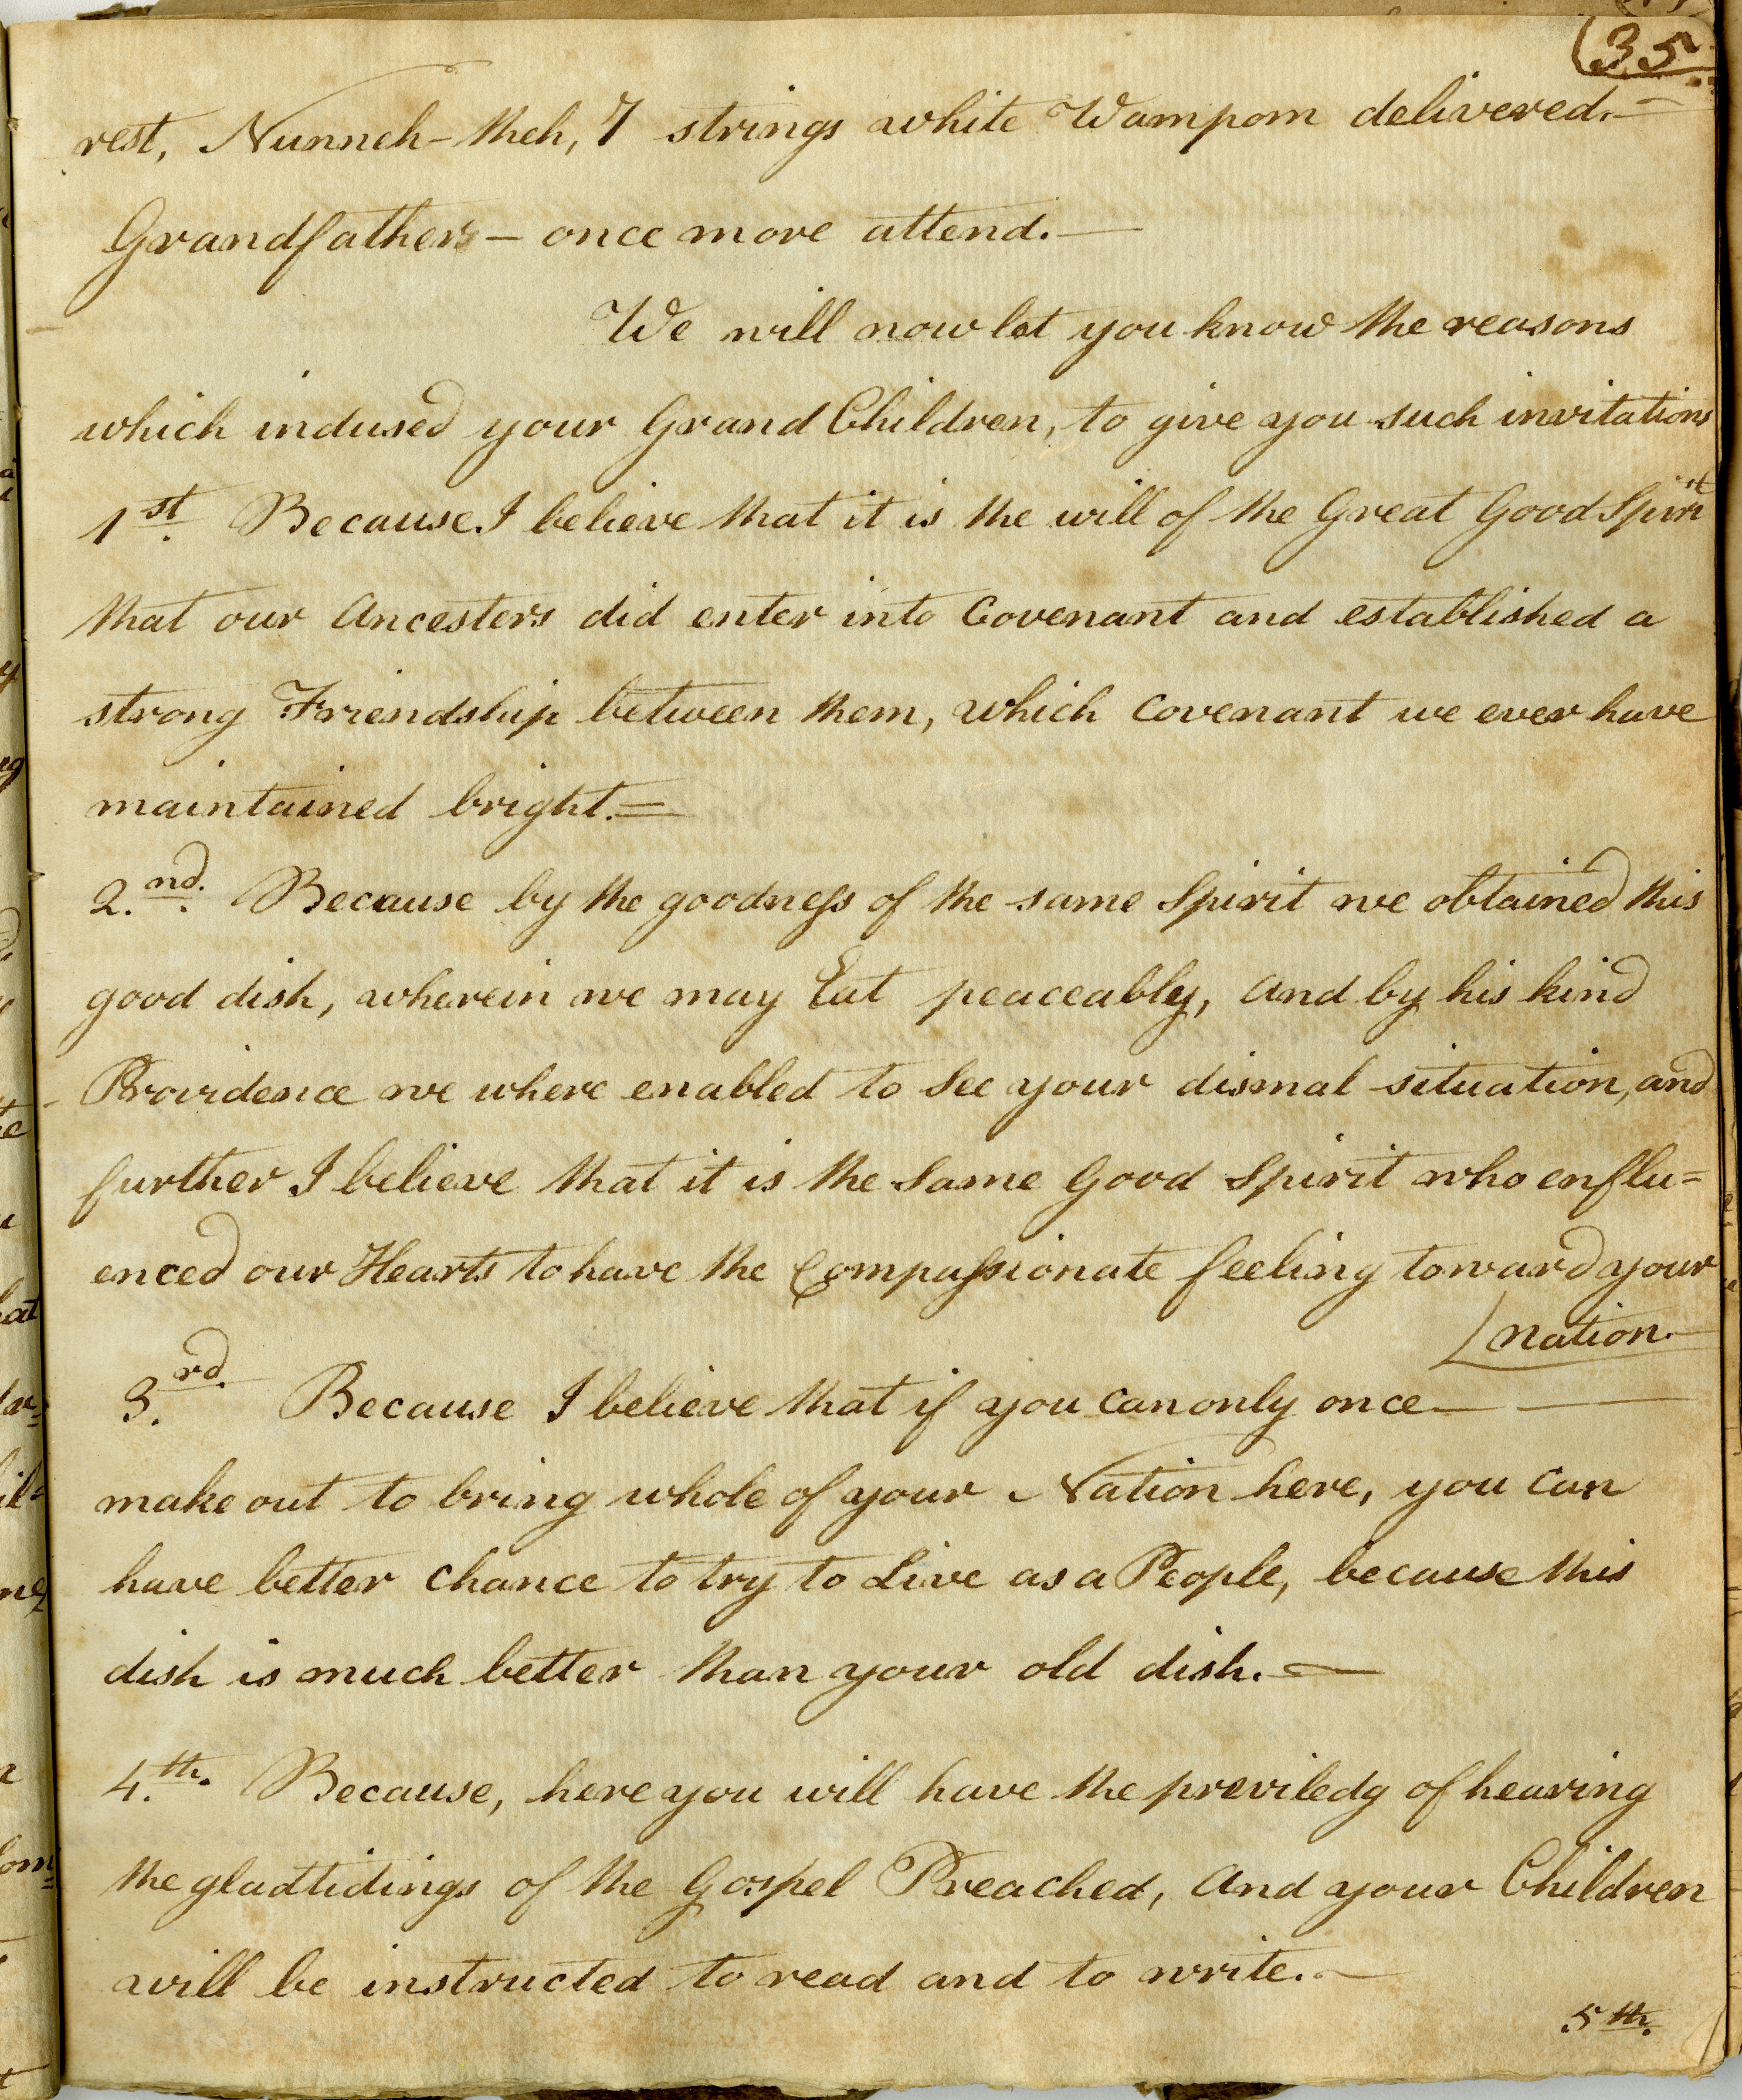 35
rest, Nunneh-theh, 7 strings white Wampom delivered.—
Grandfathers — once more attend.—
We will now let you know the reasons
which indused your Grand Children, to give you such invitations
1st. Because I believe that it is the will of the Great Good Spirit
that our Ancesters did enter into Covenant and established a
strong Friendship between them, which Covenant we ever have
maintained bright.=
2.nd. Because by the goodness of the same Spirit we obtained this
good dish, wherein we may Eat peaceably, and by his kind
Providence we where enabled to see your dismal situation, and
further I believe that it is the same Good Spirit who enflu=
enced our Hearts to have the Compassionate feeling toward your
nation.—
3.rd. Because I believe that if you can only once — —
make out to bring whole of your Nation here, you can
have better chance to try to Live as a People, because this
dish is much better than your old dish.—
4.th. Because, here you will have the previledg of hearing
the gladtidings of the Gospel Preached, and your Children
will be instructed to read and to write.—
5th.